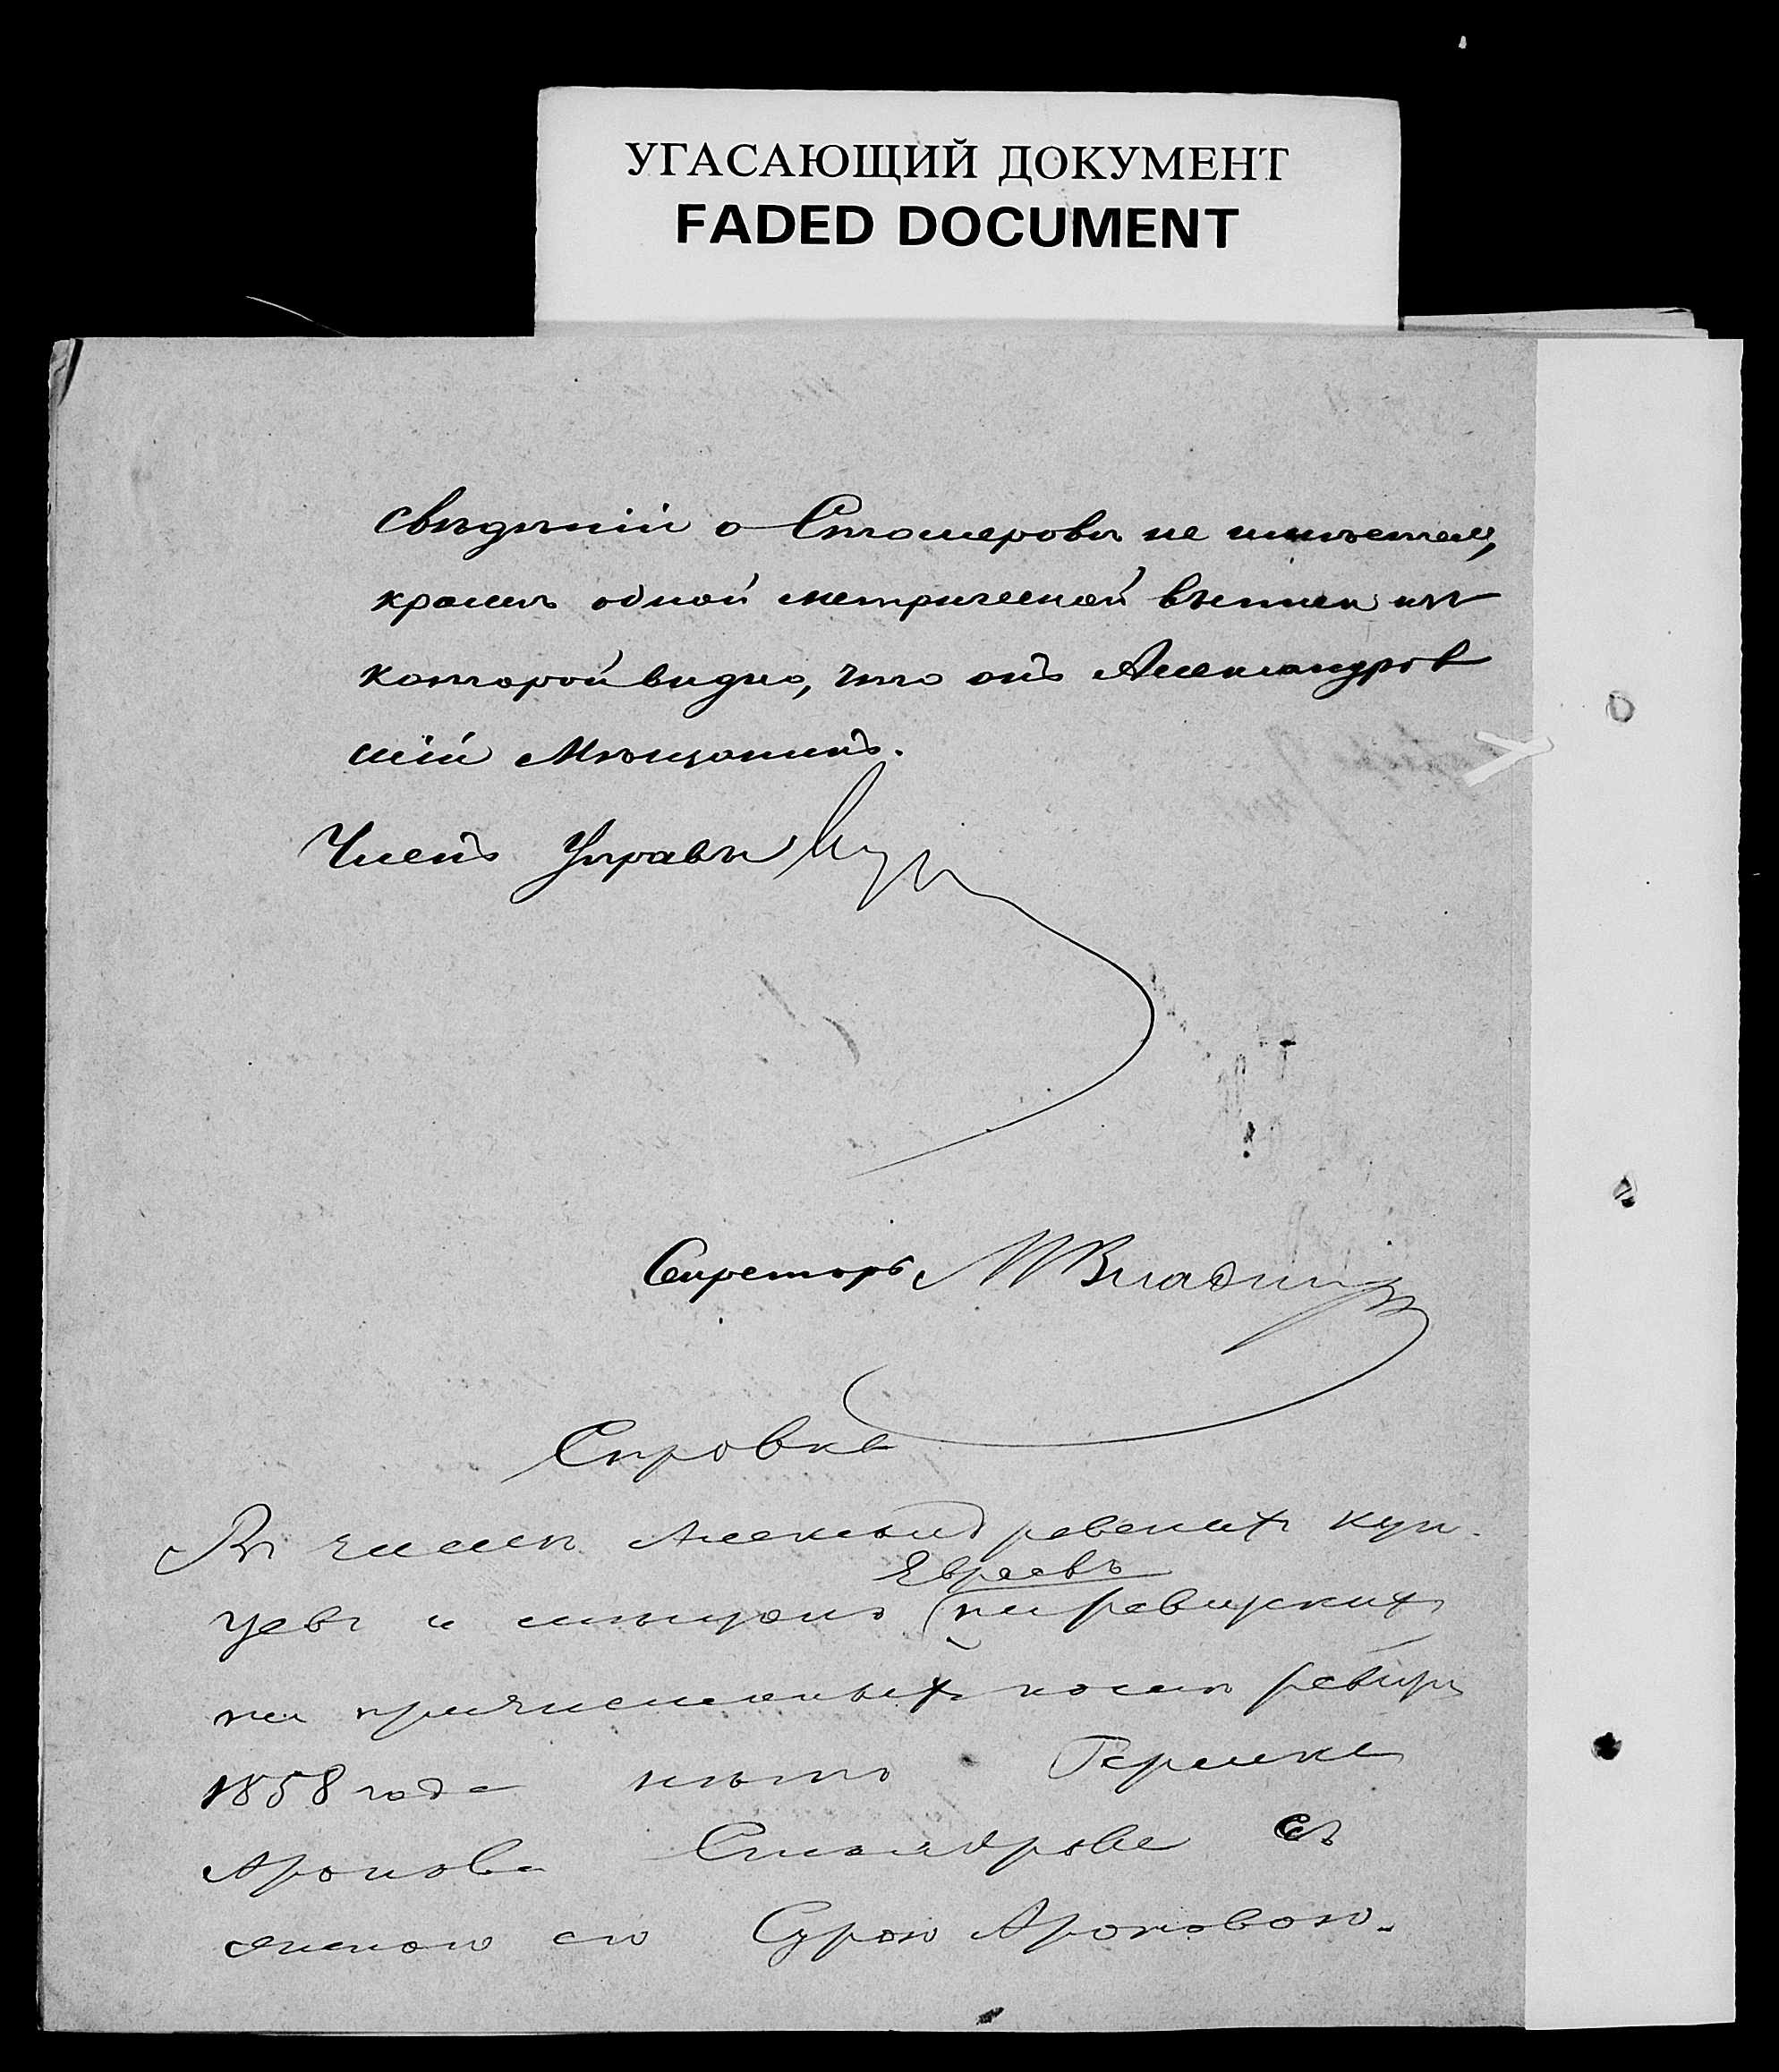 УГАСАЮЩИЙ ДОКУМЕНТ
FADED DOCUMENT
свѣдѣній о Столяровѣ не имѣется,
кромѣ одной метрической выписи изъ
которой видно, что онъ Александров
скій Мѣщанинъ.
Членъ Управы
Секретарь
Справка
Въ числѣ Александровскихъ куп-
Евреевъ
цевъ и мѣщанъ по ревизскихъ
и причисленныхъ послѣ ревизіи
1858 года нѣтъ Гершка
Аронова Столярова съ
женою его Сурою Ароновою.